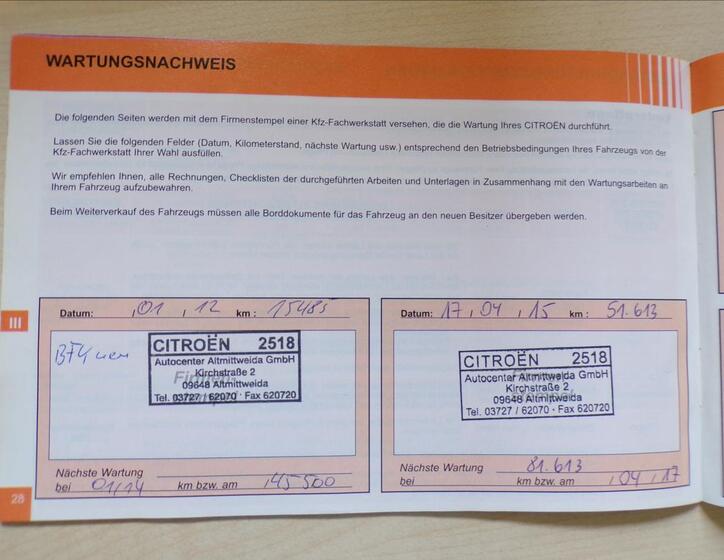 WARTUNGSNACHWEIS
Die folgenden Seiten werden mit dem Firmenstempel einer Kfz-Fachwerkstatt versehen, die die Wartung Ihres CITROËN durchführt.
Lassen Sie die folgenden Felder (Datum, Kilometerstand, nächste Wartung usw.) entsprechend den Betriebsbedingungen Ihres Fahrzeugs von der
Kfz-Fachwerkstatt Ihrer Wahl ausfüllen.
Wir empfehlen Ihnen, alle Rechnungen, Checklisten der durchgeführten Arbeiten und Unterlagen in Zusammenhang mit den Wartungsarbeiten an
Ihrem Fahrzeug aufzubewahren.
Beim Weiterverkauf des Fahrzeugs müssen alle Borddokumente für das Fahrzeug an den neuen Besitzer übergeben werden.
III
Datum: , 01 , 12 km : 15485
CITROËN 2518
Autocenter Altmittweida GmbH
Kirchstraße 2
09648 Altmittweida
Tel. 03727 / 62070 · Fax 620720
Nächste Wartung
bei 01/14 km bzw. am 45 500
Datum: 17 , 04 , 15 km : 51.613
CITROËN 2518
Autocenter Altmittweida GmbH
Kirchstraße 2
09648 Altmittweida
Tel. 03727 / 62070 · Fax 620720
Nächste Wartung 81.613
bei km bzw. am , 04 , 17
28